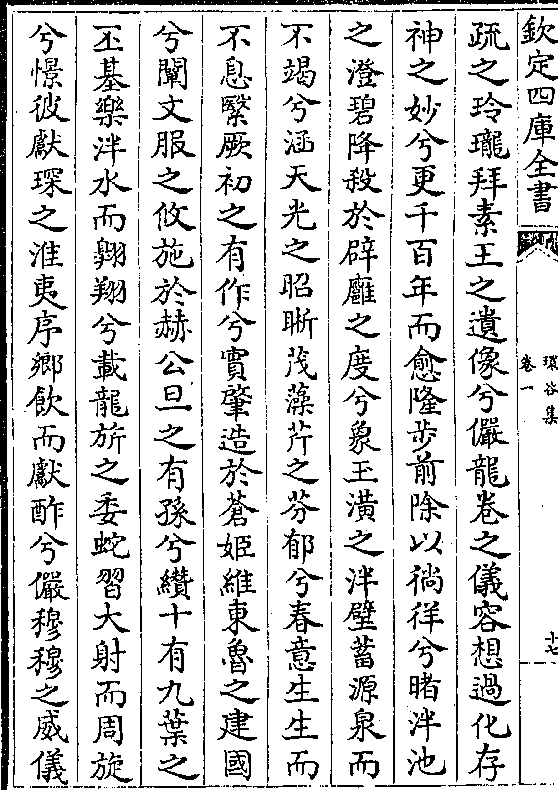 欽定四庫全書
環谷集
卷一
十七
疏之玲瓏拜素王之遺像兮儼龍卷之儀容想過化存
神之妙兮更千百年而愈隆步前除以徜徉兮睹泮池
之澄碧降殺於辟廱之度兮象玉潢之泮璧蓄源泉而
不竭兮涵天光之昭晣茂藻芹之芬郁兮春意生生而
不息繄厥初之有作兮實肇造於蒼姬維東魯之建國
兮闡文服之攸施於赫公旦之有孫兮纘十有九葉之
丕基樂泮水而翱翔兮載龍旂之委蛇習大射而周旋
兮憬彼獻琛之淮夷序鄉飲而獻酢兮儼穆穆之威儀